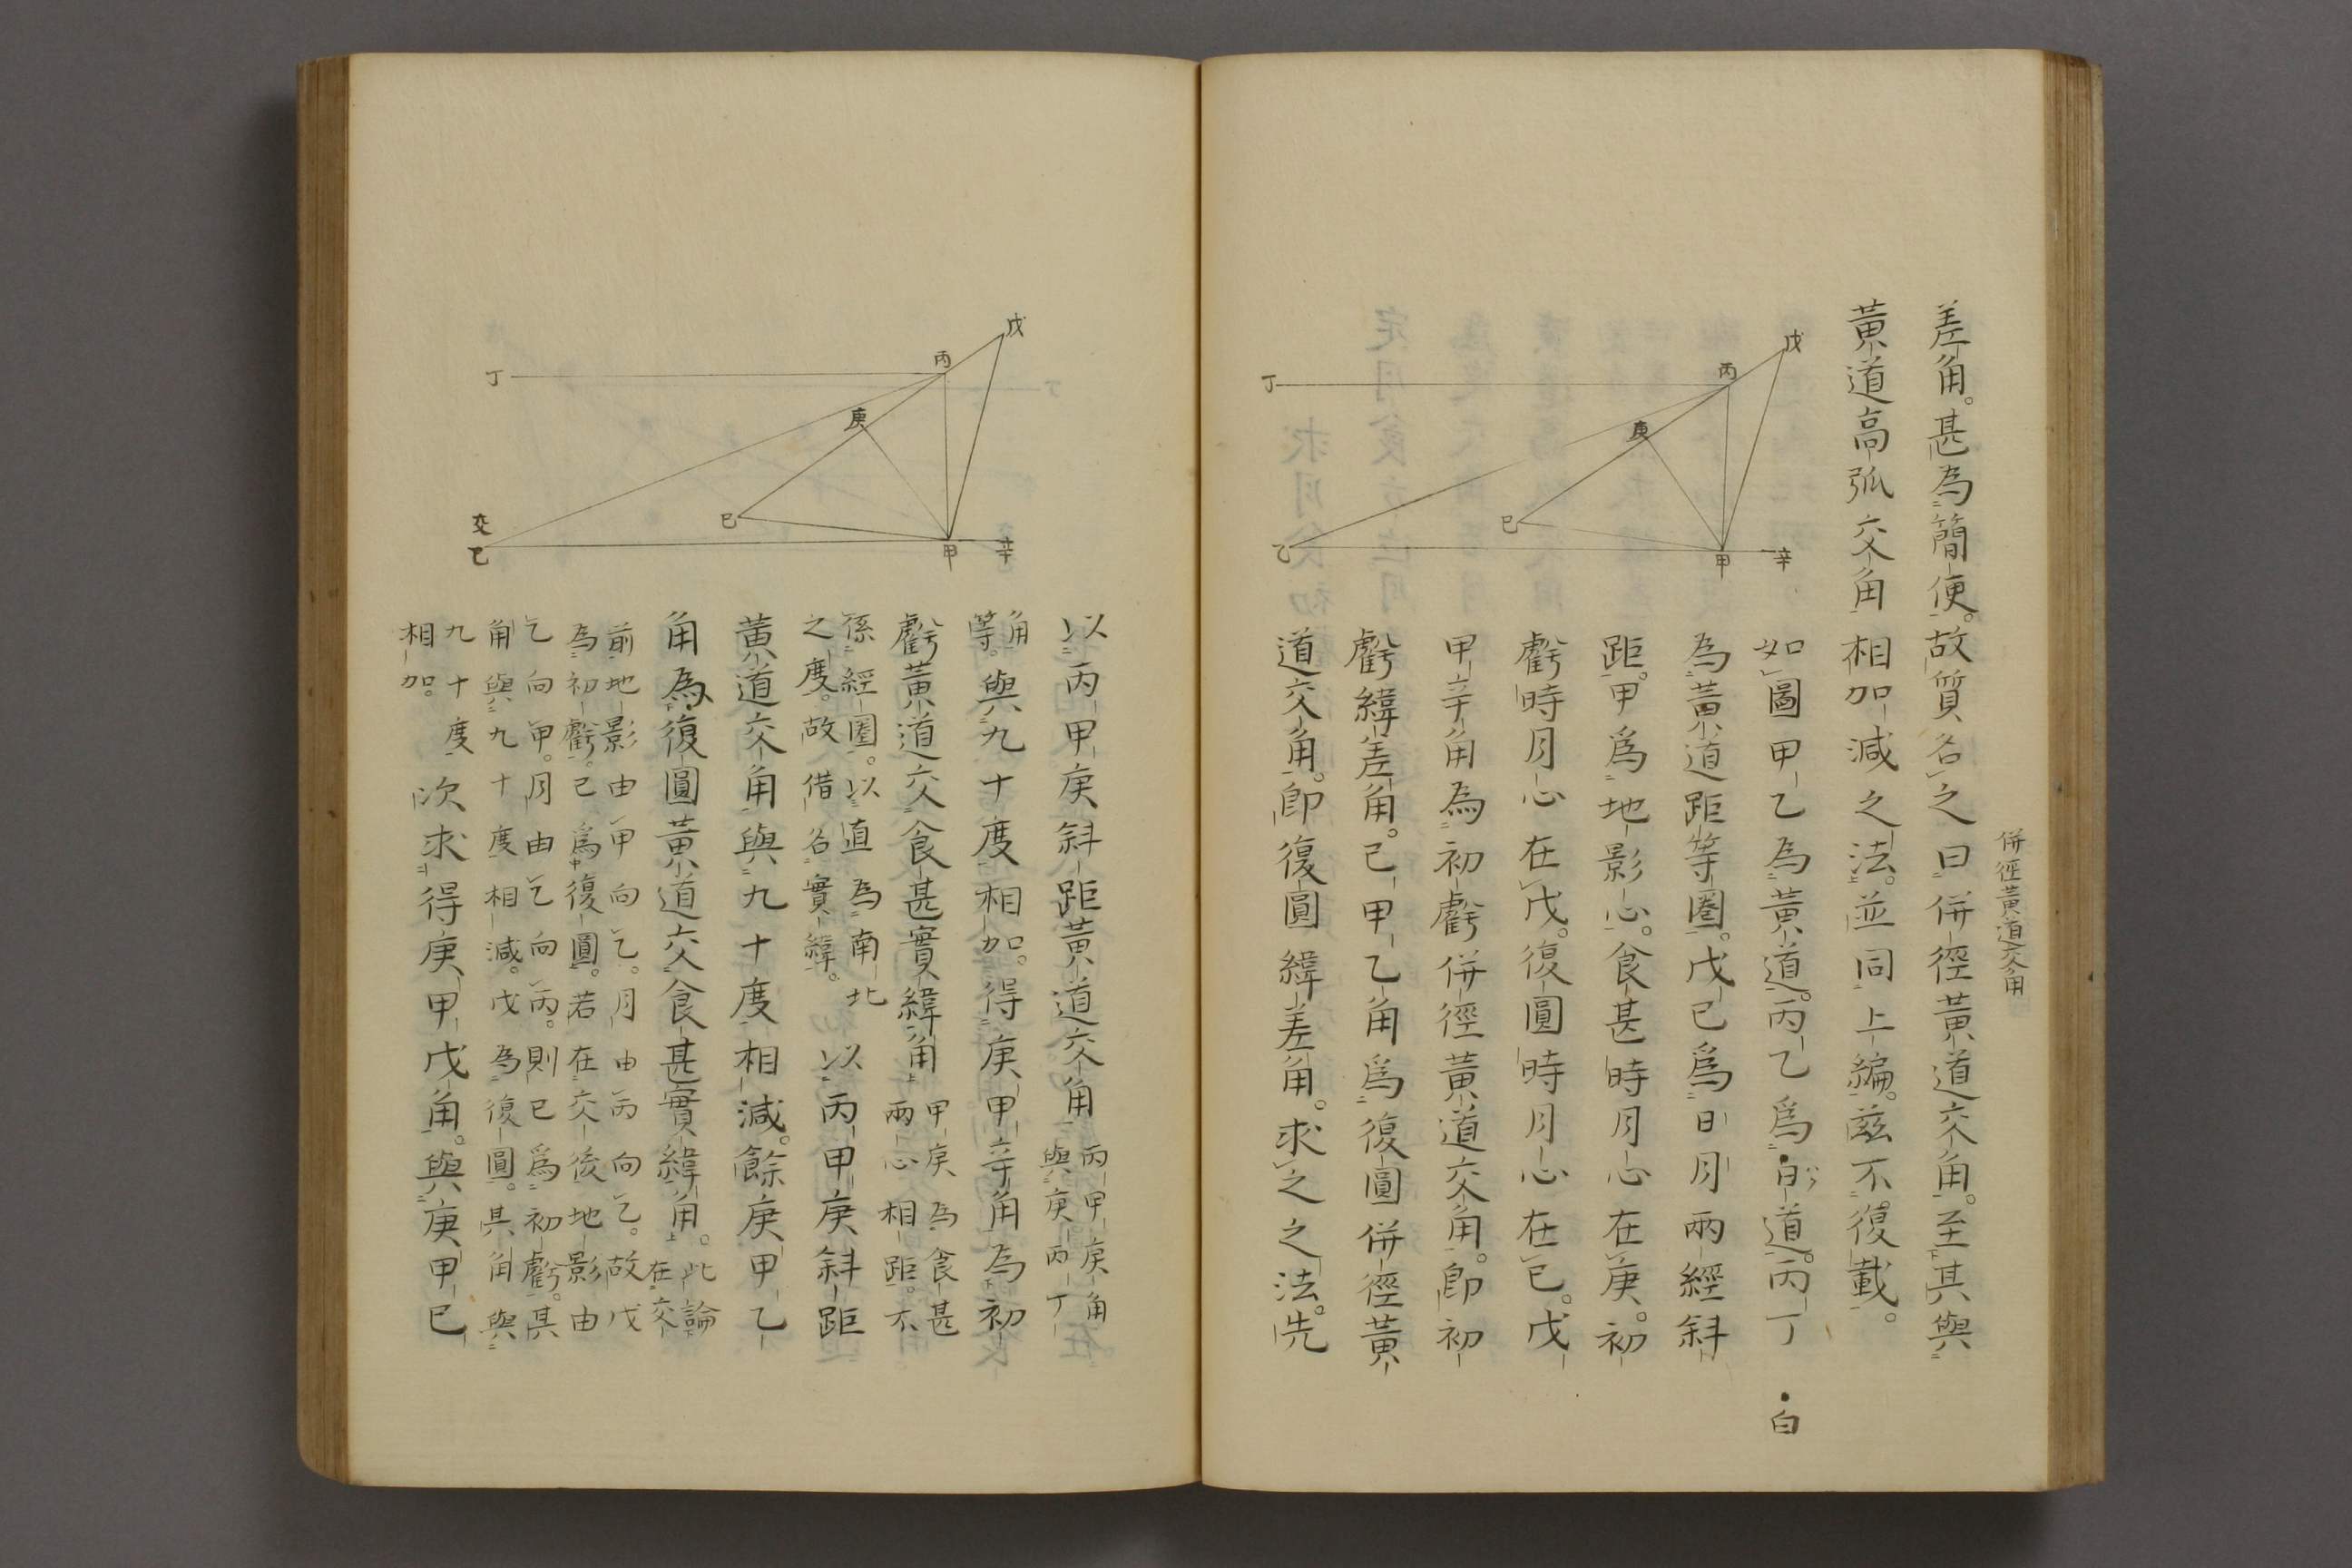 併徑黄道交角
差角。甚為簡便。故質名之曰併徑黄道交角。至其與
黄道高弧交角相加減之法。並同上編。茲不復載。
戊
丙
丁
庚
已
乙
甲
辛
如圖甲乙為黄道。丙乙爲白道。丙丁
白
為黄道距等圈。戊已爲日月兩經斜
距。甲爲地影心。食甚時月心在庚。初
虧時月心在戊。復圓時月心在已。戊
甲辛角為初虧併徑黄道交角。即初
虧緯差角。已甲乙角爲復圓併徑黄
道交角。即復圓緯差角。求之之法。先
戊
丙
丁
庚
已
交
乙
甲
辛
以丙甲庚斜距黄道交角
丙甲庚角
與庚丙丁
角
等。
與九十度相加。得庚甲辛角為初
虧黄道交食甚實緯角
甲庚為食甚
兩心相距。不
係經圈。以直為南北
之度。故借名實緯。
以丙甲庚斜距
黄道交角與九十度相減。餘庚甲乙
角為復圓黄道交食甚實緯角。
此論
在交
前地影由甲向乙。月由丙向乙。故戊
為初虧。已爲復圓。若在交後地影由
乙向甲。月由乙向丙。則已爲初虧。其
角與九十度相減。戊為復圓。其角與
九十度
相加。
次求得庚甲戊角。與庚甲已